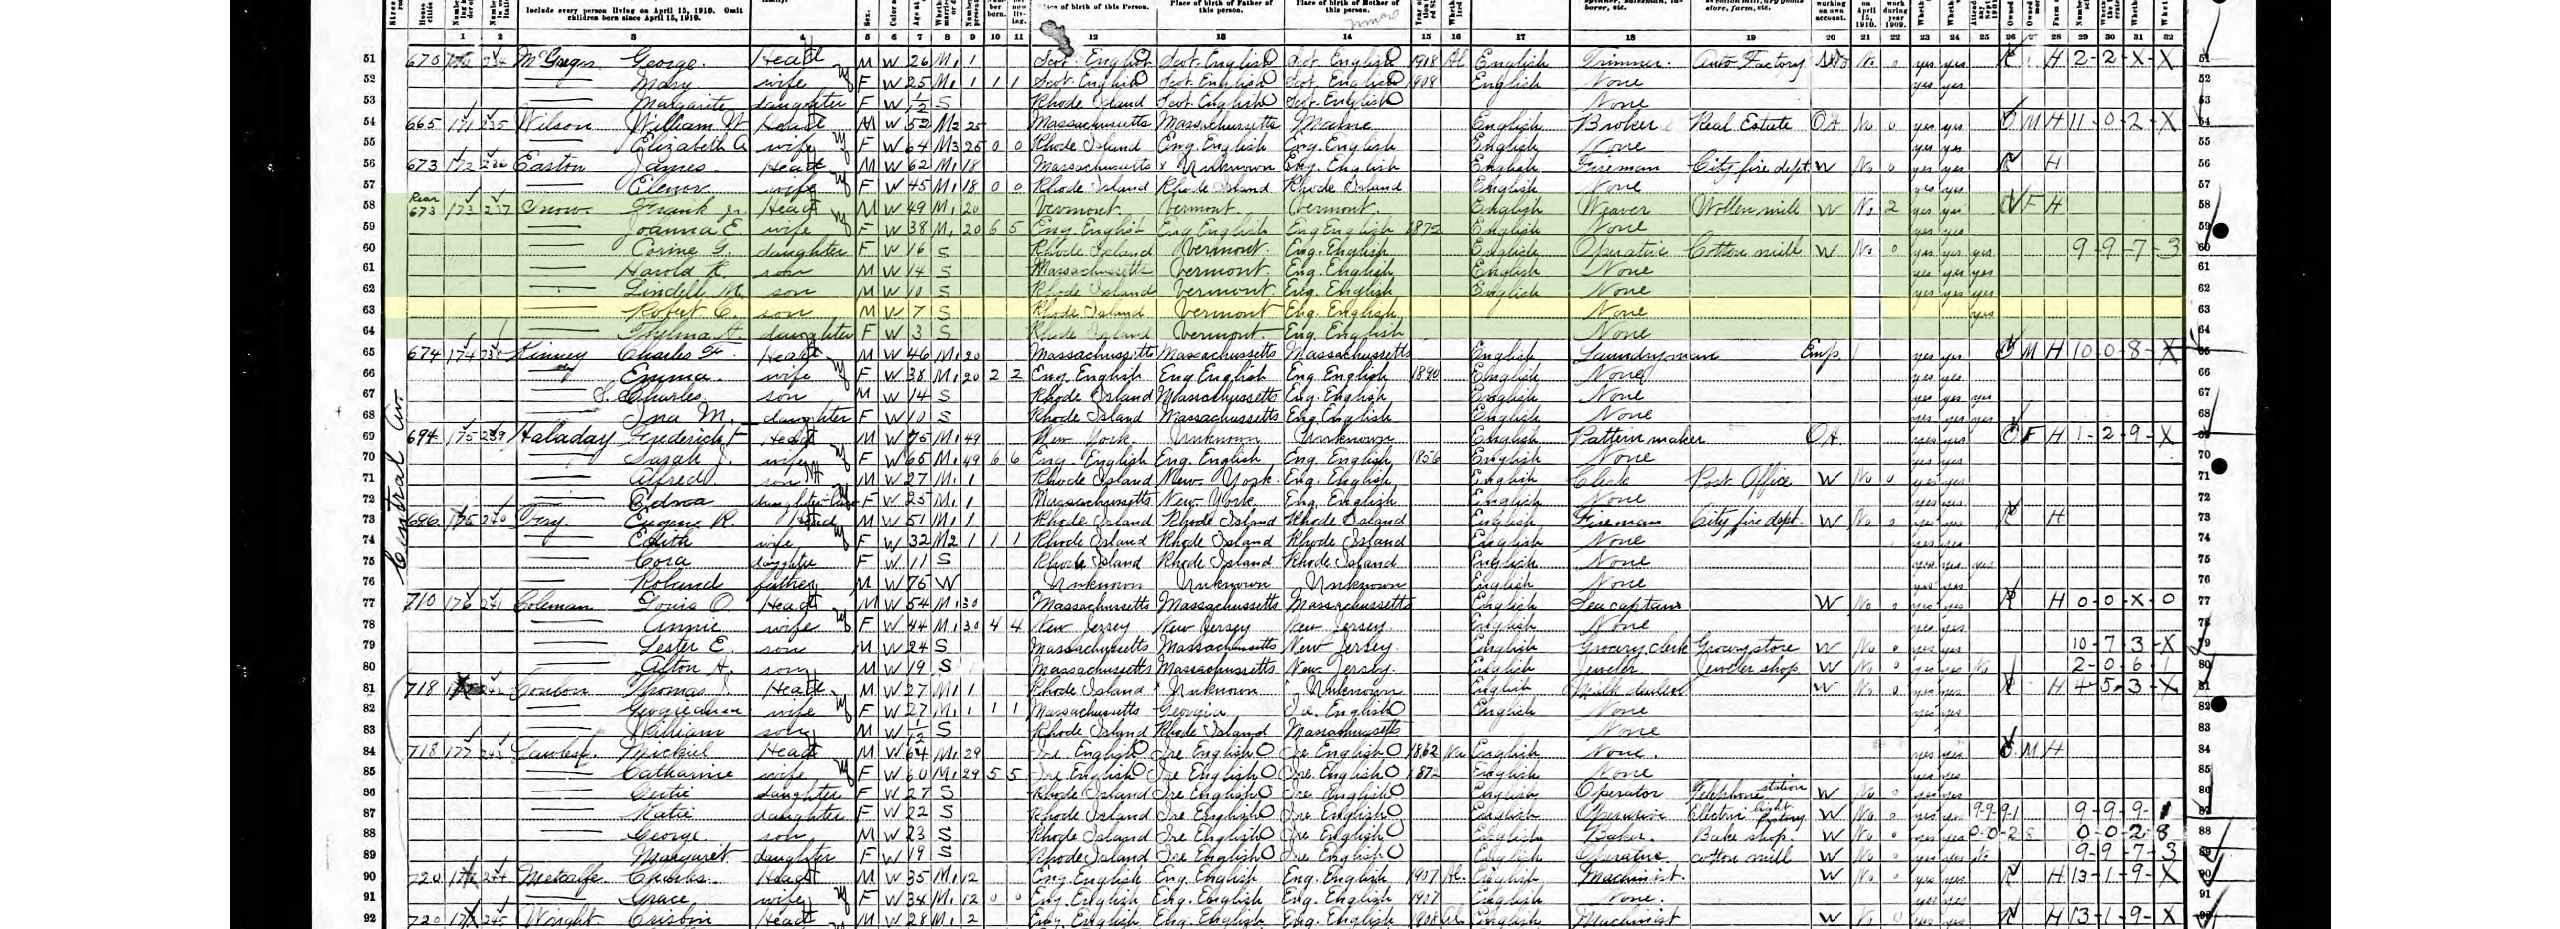 Include every person living on April 15, 1910. Omit
children born since April 15, 1910.
Place of birth of this Person. Place of birth of Father of this person. Place of birth of Mother of this person.
1 2 3 4 5 6 7 8 9 10 11 12 13 14 15 16 17 18 19 20 21 22 23 24 25 26 27 28 29 30 31 32
Central Av.
51 670 McGregor George Head M W 26 M1 1 Scot. English Scot. English Scot. English 1908 Al English Trimmer Auto Factory No 0 yes yes R H 2-2-X-X 51
52 Mary wife F W 25 M1 1 1 1 Scot. English Scot. English Scot. English 1908 English None yes yes 52
53 Margarite daughter F W S Rhode Island Scot. English Scot. English None 53
54 665 171 235 Wilson William W Head M W 52 M2 25 Massachussetts Massachussetts Maine English Broker Real Estate OA No 0 yes yes O M H 11-0-2-X 54
55 Elizabeth A wife F W 64 M3 25 0 0 Rhode Island Eng. English Eng. English English None yes yes 55
56 673 172 236 Easton James Head M W 62 M1 18 Massachussetts Unknown Eng. English English Fireman City fire dept W No 0 yes yes R H 56
57 Elenor wife F W 45 M1 18 0 0 Rhode Island Rhode Island Rhode Island English None yes yes 57
58 Rear 673 173 237 Snow Frank Jr. Head M W 49 M1 20 Vermont Vermont Vermont English Weaver Wollen mill W No 2 yes yes F H 58
59 Joanna E. wife F W 38 M1 20 6 5 Eng. English Eng English Eng English 1872 English None yes yes 59
60 Corine G. daughter F W 16 S Rhode Island Vermont Eng. English English Operative Cotton mill W No 0 yes yes yes 9-9-7-3 60
61 Harold R. son M W 14 S Massachussetts Vermont Eng. English English None yes yes yes 61
62 Lindell M. son M W 10 S Rhode Island Vermont Eng. English English None yes yes yes 62
63 Robert C. son M W 7 S Rhode Island Vermont Eng. English None yes 63
64 Thelma A. daughter F W 3 S Rhode Island Vermont Eng. English None 64
65 674 174 238 Kinney Charles Head M W 46 M1 20 Massachussetts Massachussetts Massachussetts English Laundryman Emp. yes yes O M H 10-0-8-X 65
66 Emma wife F W 38 M1 20 2 2 Eng. English Eng English Eng English 1890 English None yes yes 66
67 S. Charles son M W 14 S Rhode Island Massachussetts Eng. English English None yes yes yes 67
68 Ina M. daughter F W 10 S Rhode Island Massachussetts Eng. English English None yes yes yes 68
69 694 175 239 Haladay Frederick F Head M W 75 M1 49 New York Unknown Unknown English Pattern maker OA yes yes O F H 1-2-9-X 69
70 Sarah J. wife F W 65 M1 49 6 6 Eng. English Eng. English Eng. English 1856 English None yes yes 70
71 Alfred son M W 27 M1 1 Rhode Island New York Eng. English English Clerk Post Office W No 0 yes yes 71
72 Edna daughter-in-law F W 25 M1 Massachussetts New York Eng. English English None yes yes 72
73 696 240 Eugene R. Head M W 51 M1 1 Rhode Island Rhode Island Rhode Island English Fireman City fire dept. W No 0 yes yes R H 73
74 Edith wife F W 32 M2 1 1 1 Rhode Island Rhode Island Rhode Island English None yes yes 74
75 Cora daughter F W 11 S Rhode Island Rhode Island Rhode Island English None yes yes yes 75
76 Roland father M W 76 W Unknown Unknown Unknown English None yes yes 76
77 710 176 241 Coleman Louis O. Head M W 54 M1 30 Massachussetts Massachussetts Massachussetts English Sea captain W No 0 yes yes R H 0-0-X-0 77
78 Annie wife F W 44 M1 30 4 4 New Jersey New Jersey New Jersey English None yes yes 78
79 Lester E. son M W 24 S Massachussetts Massachussetts New Jersey English Grocery clerk Grocery store W No 0 yes yes 10-7-3-X 79
80 Afton H. son M W 19 S Massachussetts Massachussetts New Jersey English Jeweler Jeweler shop W No 0 yes yes No 2-0-6-1 80
81 718 Thomas J. Head M W 27 M1 1 Rhode Island Unknown Unknown English Milk dealer W No 0 yes yes R H 4-5-3-X 81
82 Georgeanna wife F W 27 M1 1 1 1 Massachussetts Georgia Ire. English English None yes yes 82
83 William son M W S Rhode Island Rhode Island Massachussetts None 83
84 718 177 243 Mickiel Head M W 64 M1 29 Ire. English Ire English Ire English 1862 Na English None yes yes O M H 84
85 Catharine wife F W 60 M1 29 5 5 Ire. English Ire English Ire. English 1872 English None yes yes 85
86 Gertie daughter F W 27 S Rhode Island Ire English Ire English English Operator Telephone station W No 0 yes yes 86
87 Katie daughter F W 22 S Rhode Island Ire English Ire English English Operative Electric light factory W No 0 yes yes 9-9-9-1 87
88 George son M W 23 S Rhode Island Ire English Ire English English Baker Bake shop W No 0 yes yes 0-0-2-8 88
89 Margaret daughter F W 19 S Rhode Island Ire English Ire English English Operative cotton mill W No 0 yes yes No 9-9-7-3 89
90 720 244 Metcalfe Charles Head M W 35 M1 12 Eng. English Eng. English Eng. English 1907 Al. English Machinist W No 0 yes yes R H 13-1-9-X 90
91 Grace wife F W 34 M1 12 0 0 Eng. English Eng. English Eng. English 1907 English None yes yes 91
92 720 245 Wright Crisbin Head M W 28 M1 2 Eng. English Eng. English Eng. English 1908 Al English Machinist W No 0 yes yes R H 13-1-9-X